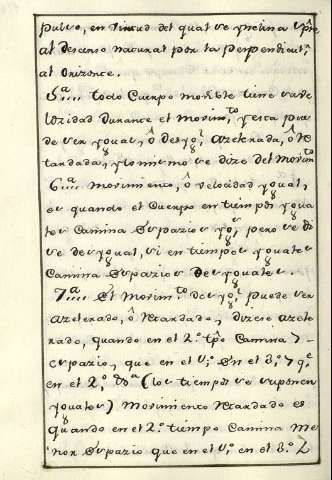 pulso, en virtud del qual se ynclina spre
al descenso natural por la Perpendicul.r
al Orizonte.
5.a Todo Cuerpo mobible tiene su ve-
lozidad Durante el Movim.to y esta pue
de ser ygual, ô Desyg.l azelerada, ô Re
tardada, y lo mismo se dize del Movim.to
6.a Movimiento, ô velocidad ygual,
es quando el Cuerpo en tiempos ygua
les Camina Espazios yg.s, pero se di
ze desygual, si en tiempos yguales
Camina Espazios Desyguales.
7.a El Movim.to desyg.l puede ser
azelerado, ô Retardado, dizese azele
rado, quando en el 2.o tpo Camina >
espazio, que en el 1.o En el 3.o > q.e
en el 2.o &a (los tiempos se suponen
yguales) Movimiento Retardado es
quando en el 2.o tiempo Camina me
nor Espazio que en el 1.o en el 3.o L